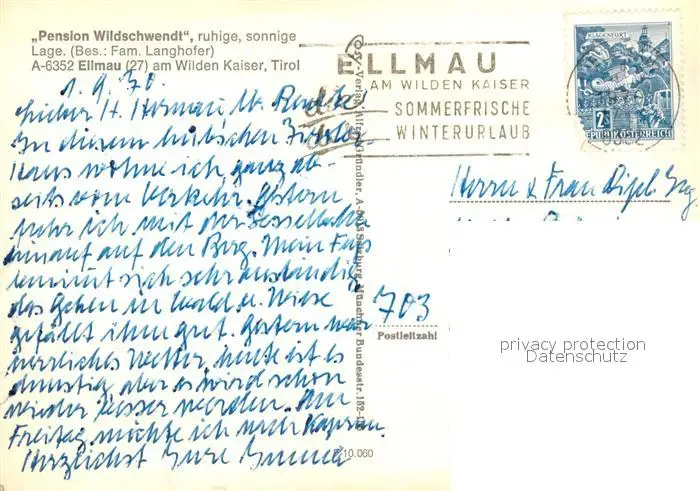 „Pension Wildschwendt“, ruhige, sonnige
Lage. (Bes.: Fam. Langhofer)
A-6352 Ellmau (27) am Wilden Kaiser, Tirol
1.9.70.
Lieber H. Herman
In diesem hübschen
Haus wohne ich ganz ab-
seits vom Verkehr. Gestern
fuhr ich mit der Sesselbahn
hinauf auf den Berg. Mein Fuß
benimmt sich sehr anständig
das Gehen in Wald u. Wiese
gefällt ihm gut. Gestern war
herrliches Wetter, heute ist es
dunstig aber es wird schon
wieder besser werden. Am
Freitag möchte ich nach
Herzlichst Eure
ELLMAU
AM WILDEN KAISER
SOMMERFRISCHE
WINTERURLAUB
KLAGENFURT
2S
REPUBLIK ÖSTERREICH
Herrn u Frau Dipl. Ing
703
Postleitzahl
Verlag Alfred Gründler, A-5013 Salzburg, Münchner Bundesstr. 152
10.060
privacy protection
Datenschutz